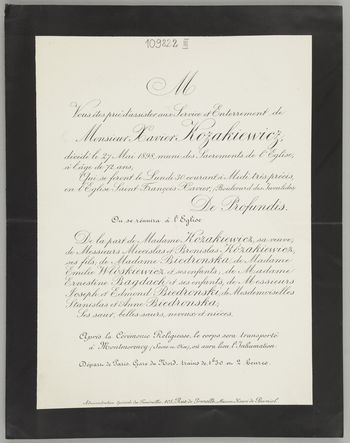 109822 III
M
Vous êtes prié d'assister aux Service et Enterrement de
Monsieur Xavier Kozakiewicz,
décédé le 27 Mai 1898, muni des Sacrements de l'Église,
à l'âge de 72 ans,
Qui se feront le Lundi 30 courant à Midi très précis
en l'Église Saint François Xavier, (Boulevard des Invalides).
De Profundis.
On se réunira à l'Église
De la part de Madame Kozakiewicz, sa veuve,
de Messieurs Miecislas et Bronislas Kozakiewicz,
ses fils, de Madame Biedronska, de Madame
Emilie Wloskiewicz et ses enfants, de Madame
Ernestine Bagdach et ses enfants, de Messieurs
Joseph et Edmond Biedronski, de Mesdemoiselles
Stanislas et Anne Biedronska,
Ses sœur, belles sœurs, neveux et nièces.
Après la Cérémonie Religieuse, le corps sera transporté
à Montmorency (Seine et Oise), où aura lieu l'Inhumation.
Départ de Paris, Gare du Nord, trains de 1h30 ou 2 heures.
Administration Spéciale des Funérailles, 103, Rue de Grenelle, Maison Henri de Borniol.